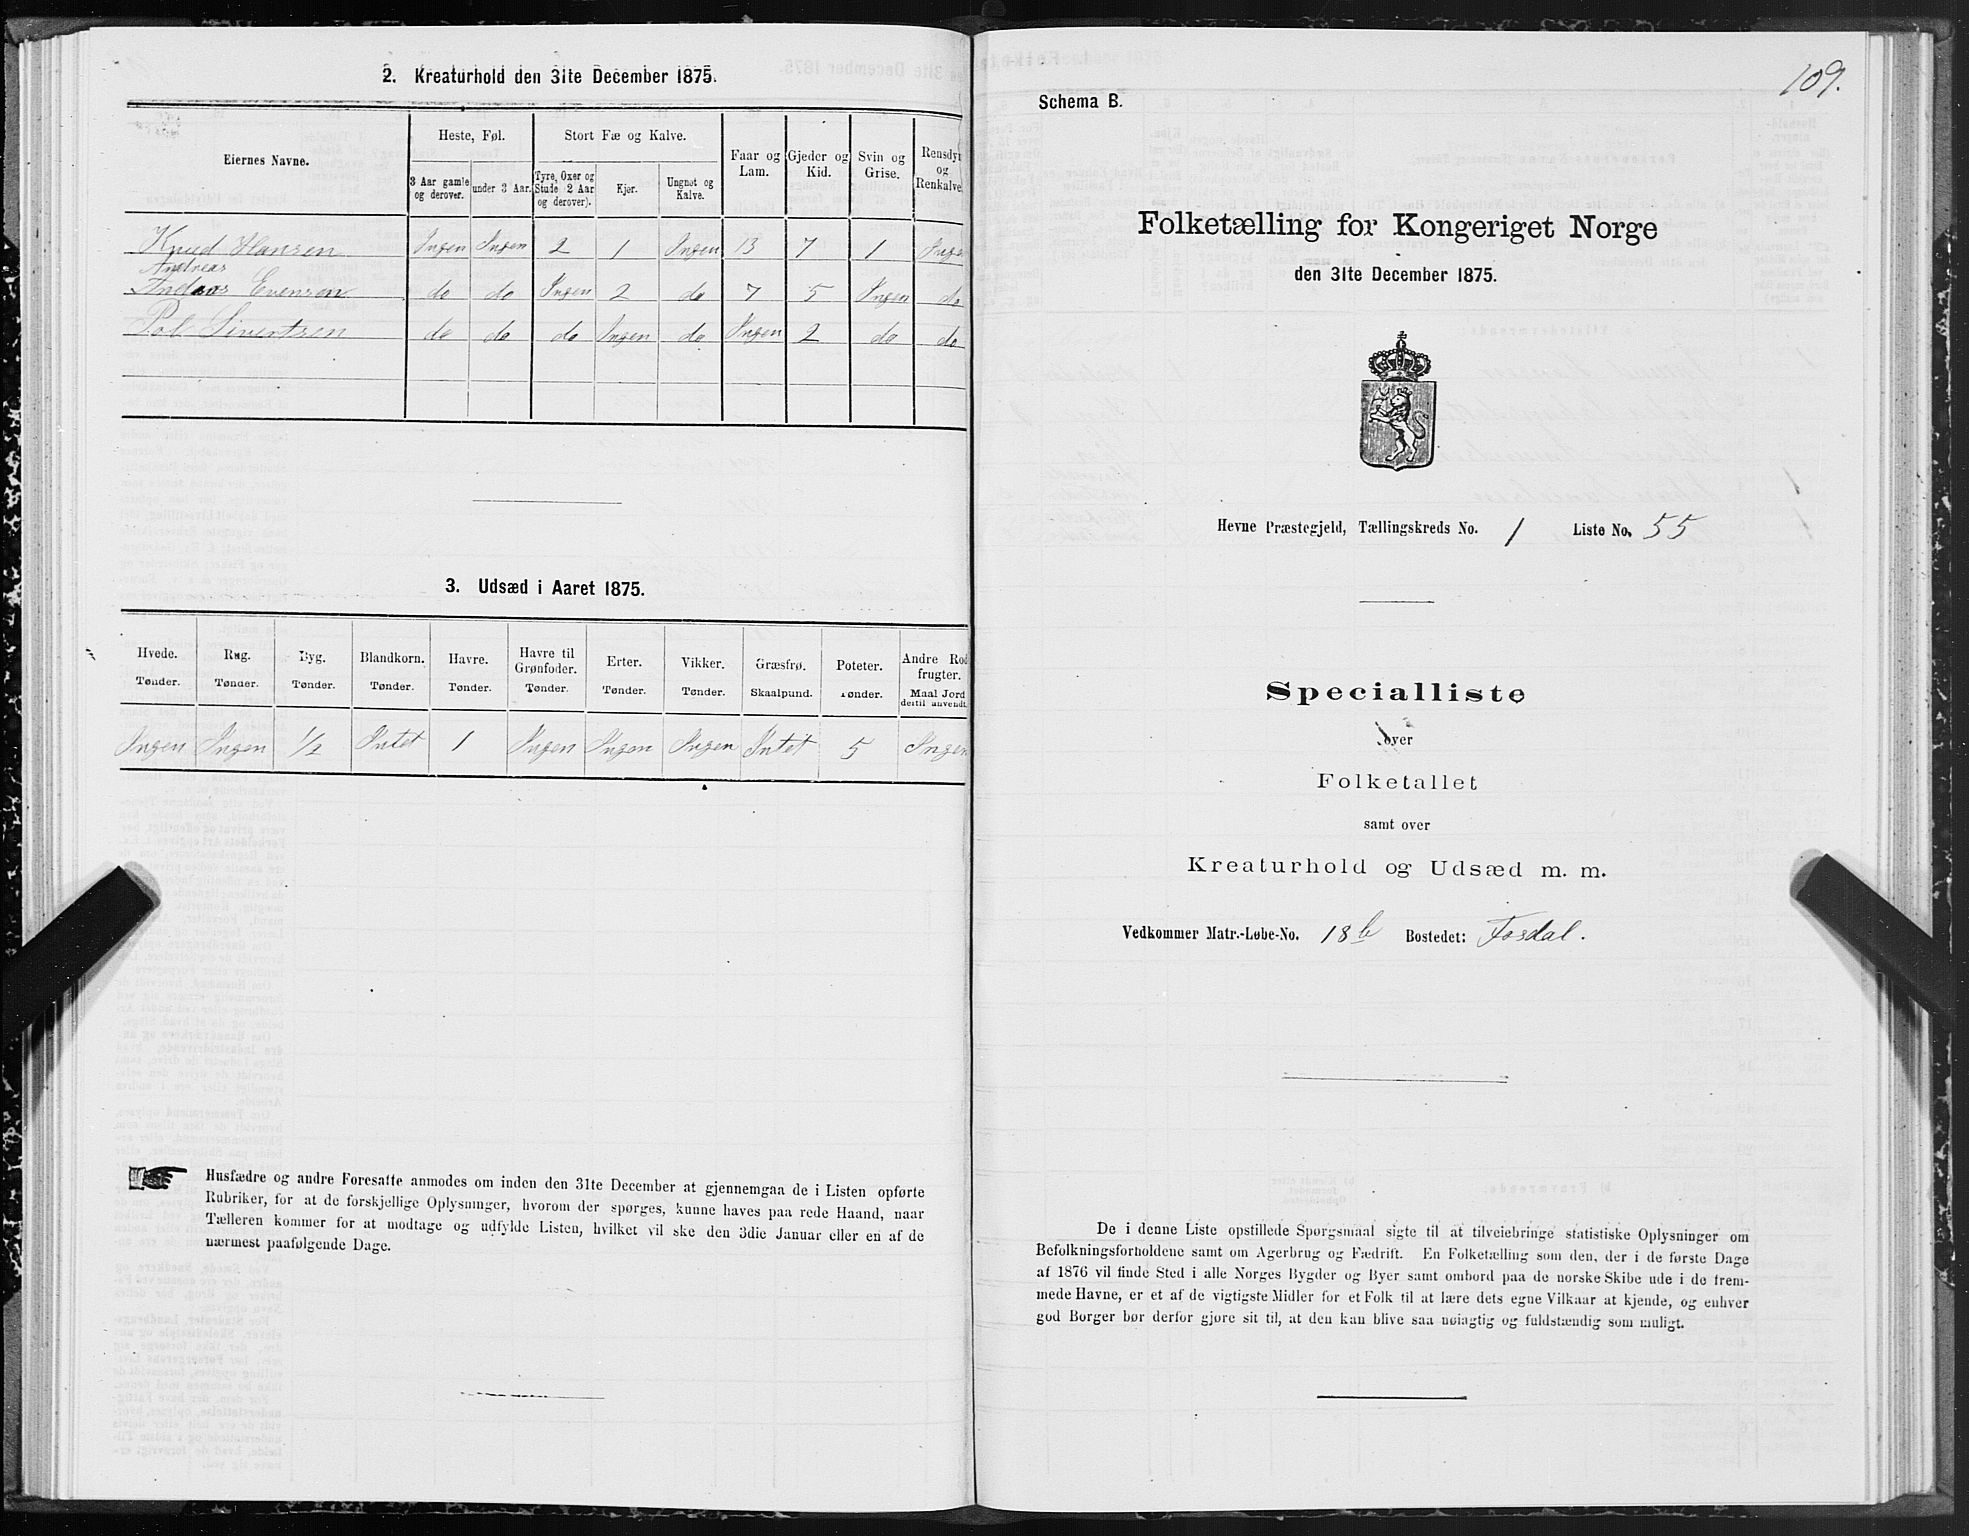 2. Kreaturhold den 31te December 1875.
Eiernes Navne.
Heste, Føl.
Stort Fæ og Kalve.
Faar og Lam.
Gjeder og Kid.
Svin og Grise.
Rensdyr og Renkalve.
3 Aar gamle og derover.
under 3 Aar.
Tyre, Oxer og Stude 2 Aar og derover).
Kjør.
Ungnøt og Kalve.
Knud Hansen Ingen Ingen 2 1 Ingen 13 7 1 Ingen
Andreas
Andreas Evensen do do Ingen 2 do 7 5 Ingen do
Pol Sivertsen do do do Ingen do Ingen 2 do do
3. Udsæd i Aaret 1875.
Hvede. Rug. Byg. Blandkorn. Havre. Havre til Grønfoder. Erter. Vikker. Græsfrø. Poteter. Andre Rodfrugter.
Tønder. Tønder. Tønder. Tønder. Tønder. Tønder. Tønder. Tønder. Skaalpund. Tønder. Maal Jord dertil anvendt.
Ingen Ingen 1/2 Intet 1 Ingen Ingen Ingen Intet 5 Ingen
Husfædre og andre Foresatte anmodes om inden den 31te December at gjennemgaa de i Listen opførte
Rubriker, for at de forskjellige Oplysninger, hvorom der spørges, kunne haves paa rede Haand, naar
Tælleren kommer for at modtage og udfylde Listen, hvilket vil ske den 3die Januar eller en af de
nærmest paafølgende Dage.
109.
Schema B.
Folketælling for Kongeriget Norge
den 31te December 1875.
Hevne Præstegjeld, Tællingskreds No. 1 Liste No. 55
Specialliste
over
Folketallet
samt over
Kreaturhold og Udsæd m. m.
Vedkommer Matr.-Løbe-No. 18b Bostedet: Fosdal.
De i denne Liste opstillede Spørgsmaal sigte til at tilveiebringe statistiske Oplysninger om
Befolkningsforholdene samt om Agerbrug og Fædrift. En Folketælling som den, der i de første Dage
af 1876 vil finde Sted i alle Norges Bygder og Byer samt ombord paa de norske Skibe ude i de frem-
mede Havne, er et af de vigtigste Midler for et Folk til at lære dets egne Vilkaar at kjende, og enhver
god Borger bør derfor gjøre sit til, at den kan blive saa nøiagtig og fuldstændig som muligt.